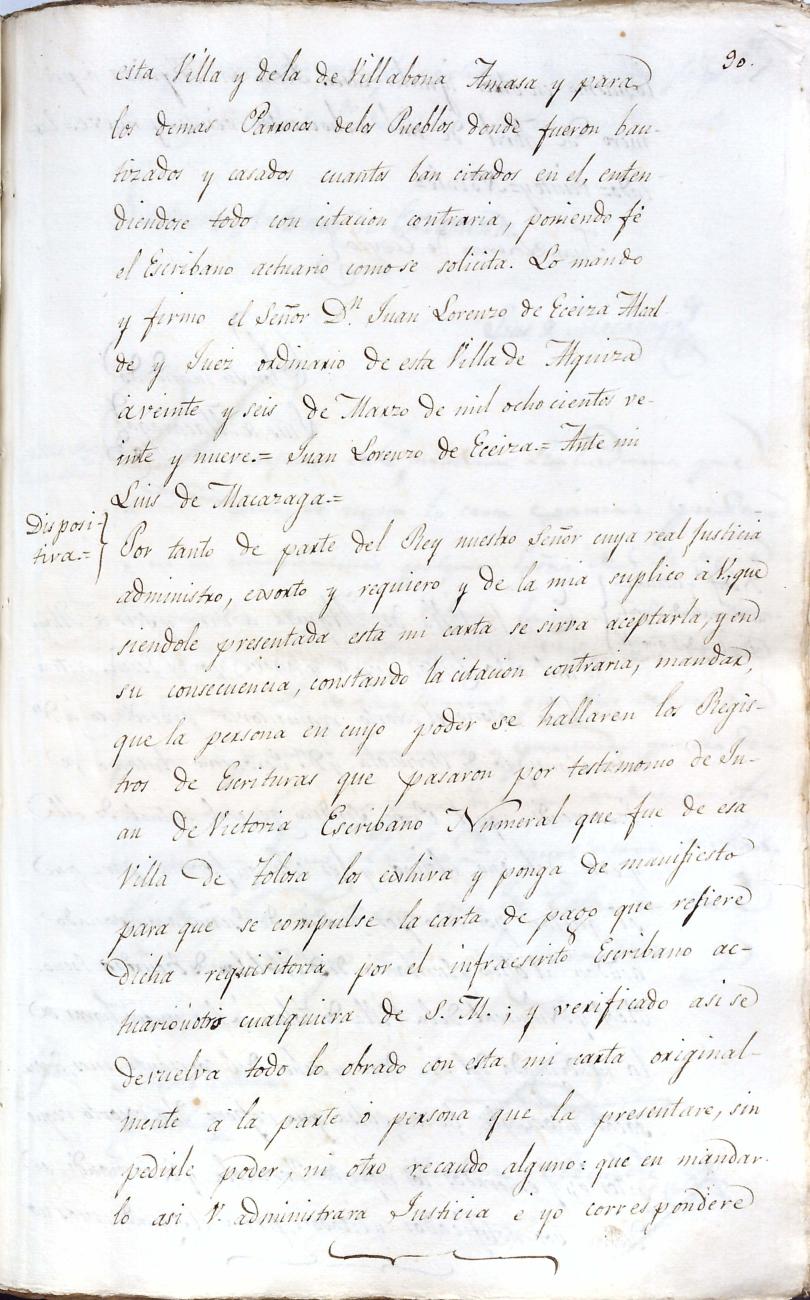 90.
esta Villa y dela de Villabona Amasa y para
los demas Parrocos delos Pueblos donde fueron bau-
tizados y casados cuantos ban citados en el, enten-
diendose todo con citacion contraria, poniendo fé
el Escribano actuario como se solicita. Lo mando
y firmo el Señor Dn. Juan Lorenzo de Eceiza Alcal
de y Juez ordinario de esta Villa de Alquiza
á veinte y seis de Marzo de mil ochocientos ve-
inte y nueve.= Juan Lorenzo de Eceiza.= Ante mi
Luis de Macazaga.=
Disposi-
tiva.=
Por tanto de parte del Rey nuestro Señor cuya real Justicia
administro, exsorto y requiero y de la mia suplico á V. que
siendole presentada esta mi carta se sirva aceptarla, y en
su consecuencia, constando la citacion contraria, mandar,
que la persona en cuyo poder se hallaren los Regis-
tros de Escrituras que pasaron por testimonio de Ju-
an de Victoria Escribano Numeral que fue de esa
Villa de Tolosa los exhiva y ponga de manifiesto
para que se compulse la carta de pago que refiere
dicha requisitoria por el infraescrito Escribano ac-
tuario ú otro cualquiera de S. M.; y verificado asi se
devuelva todo lo obrado con esta mi carta original-
mente á la parte ó persona que la presentare, sin
pedirle poder, ni otro recaudo alguno: que en mandar-
lo asi V. administrara Justicia é yo corresponderé